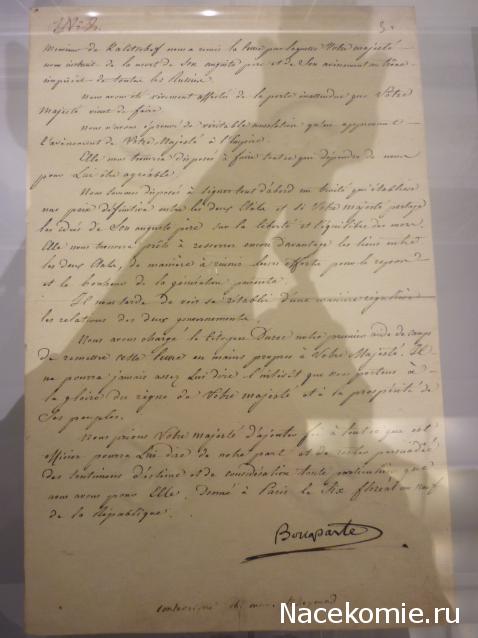 Monsieur de Kalitscheff nous a remis la lettre par laquelle Votre majesté
nous instruit de la mort de Son auguste père et de Son avènement au trône
impérial de toutes les Russies.
Nous avons été vivement affectés de la perte inattendue que Votre
Majesté vient de faire.
Nous n'avons éprouvé de véritable consolation qu'en apprenant
L'avènement de Votre Majesté à l'Empire.
Elle nous trouvera disposés à faire tout ce qui dépendra de nous
pour Lui être agréable.
Nous sommes disposé à signer tout d'abord un traité qui établisse
une paix définitive entre les deux Etats et si Votre majesté partage
les idées de Son auguste père sur la liberté et l'équilibre des mers,
Elle nous trouvera prêts à resserrer encore davantage les liens entre
les deux Etats, de manière à réunir leurs efforts pour le repos
et le bonheur de la génération présente.
Il nous tarde de voir se rétablir d'une manière régulière
les relations des deux gouvernements.
Nous avons chargé le Citoyen Duroc notre premier aide de camp
de remettre cette lettre en mains propres à Votre Majesté. Il
ne pourra jamais assez Lui dire l'intérêt que nous portons à
la gloire du règne de Votre majesté et à la prospérité de
Ses peuples.
Nous prions Votre majesté d'ajouter foi à tout ce que cet
officier pourra Lui dire de notre part et de rester persuadée
des sentimens d'estime et de considération toute particulière que
nous avons pour Elle. Donné à Paris le Six floréal an neuf
de la République.
Bonaparte
Nacekomie.ru